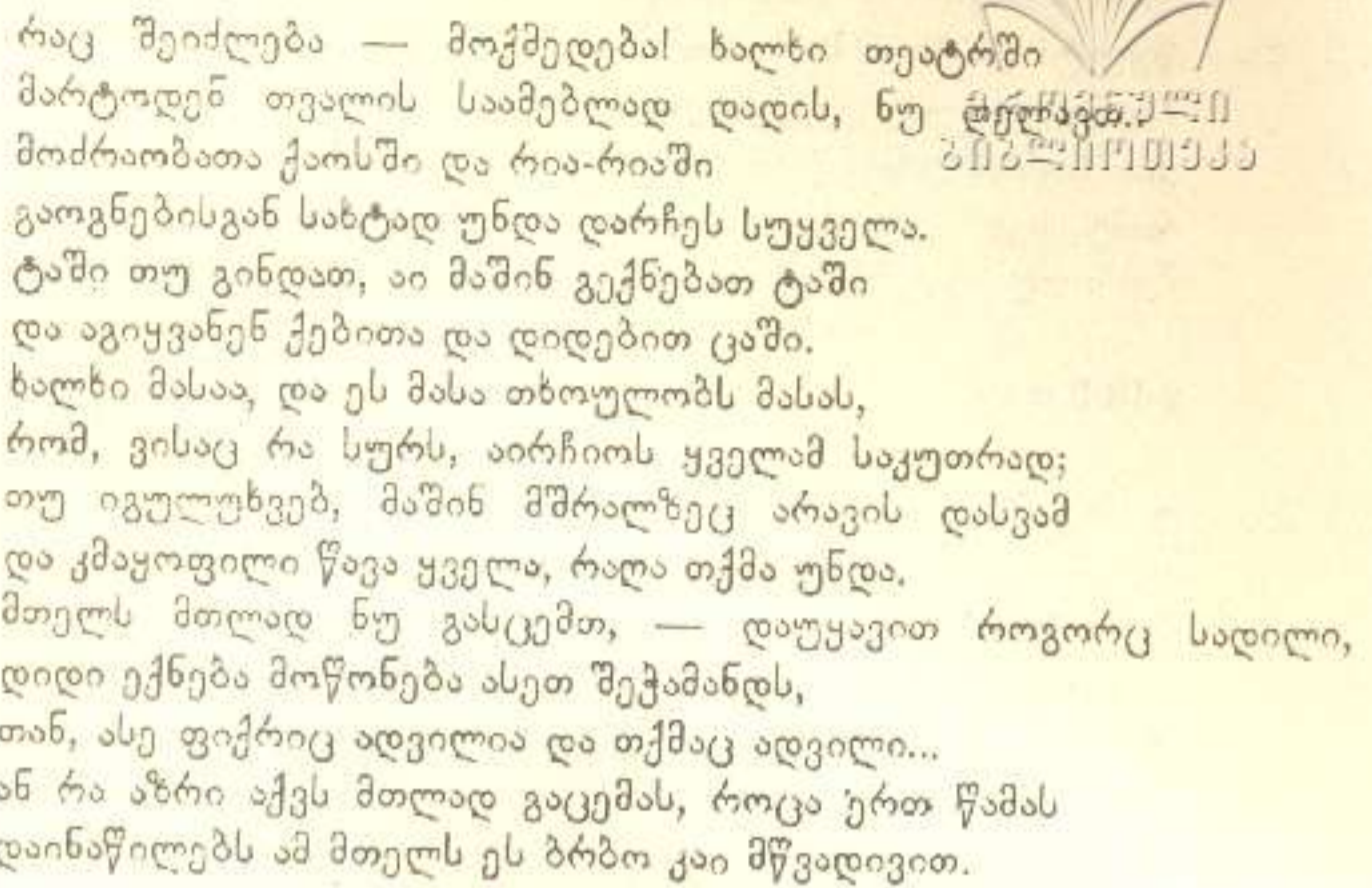 რაც შეიძლება — მოქმედება! ხალხი თეატრში
მარტოდენ თვალის საამებლად დადის, ნუ ღელავთ..
ეროვნული
ბიბლიოთეკა
მოძრაობათა ქაოსში და რია-რიაში
გაოგნებისგან სახტად უნდა დარჩეს სუყველა.
ტაში თუ გინდათ, აი მაშინ გექნებათ ტაში
და აგიყვანენ ქებითა და დიდებით ცაში.
ხალხი მასაა, და ეს მასა თხოულობს მასას,
რომ, ვისაც რა სურს, აირჩიოს ყველამ საკუთრად;
თუ იგულუხვებ, მაშინ მშრალზეც არავის დასვამ
და კმაყოფილი წავა ყველა, რაღა თქმა უნდა.
მთელს მთლად ნუ გასცემთ, — დაუყავით როგორც სადილი,
დიდი ექნება მოწონება ასეთ შეჭამანდს,
თან, ასე ფიქრიც ადვილია და თქმაც ადვილი...
ან რა აზრი აქვს მთლად გაცემას, როცა ერთ წამას
დაინაწილებს ამ მთელს ეს ბრბო კაი მწვადივით.